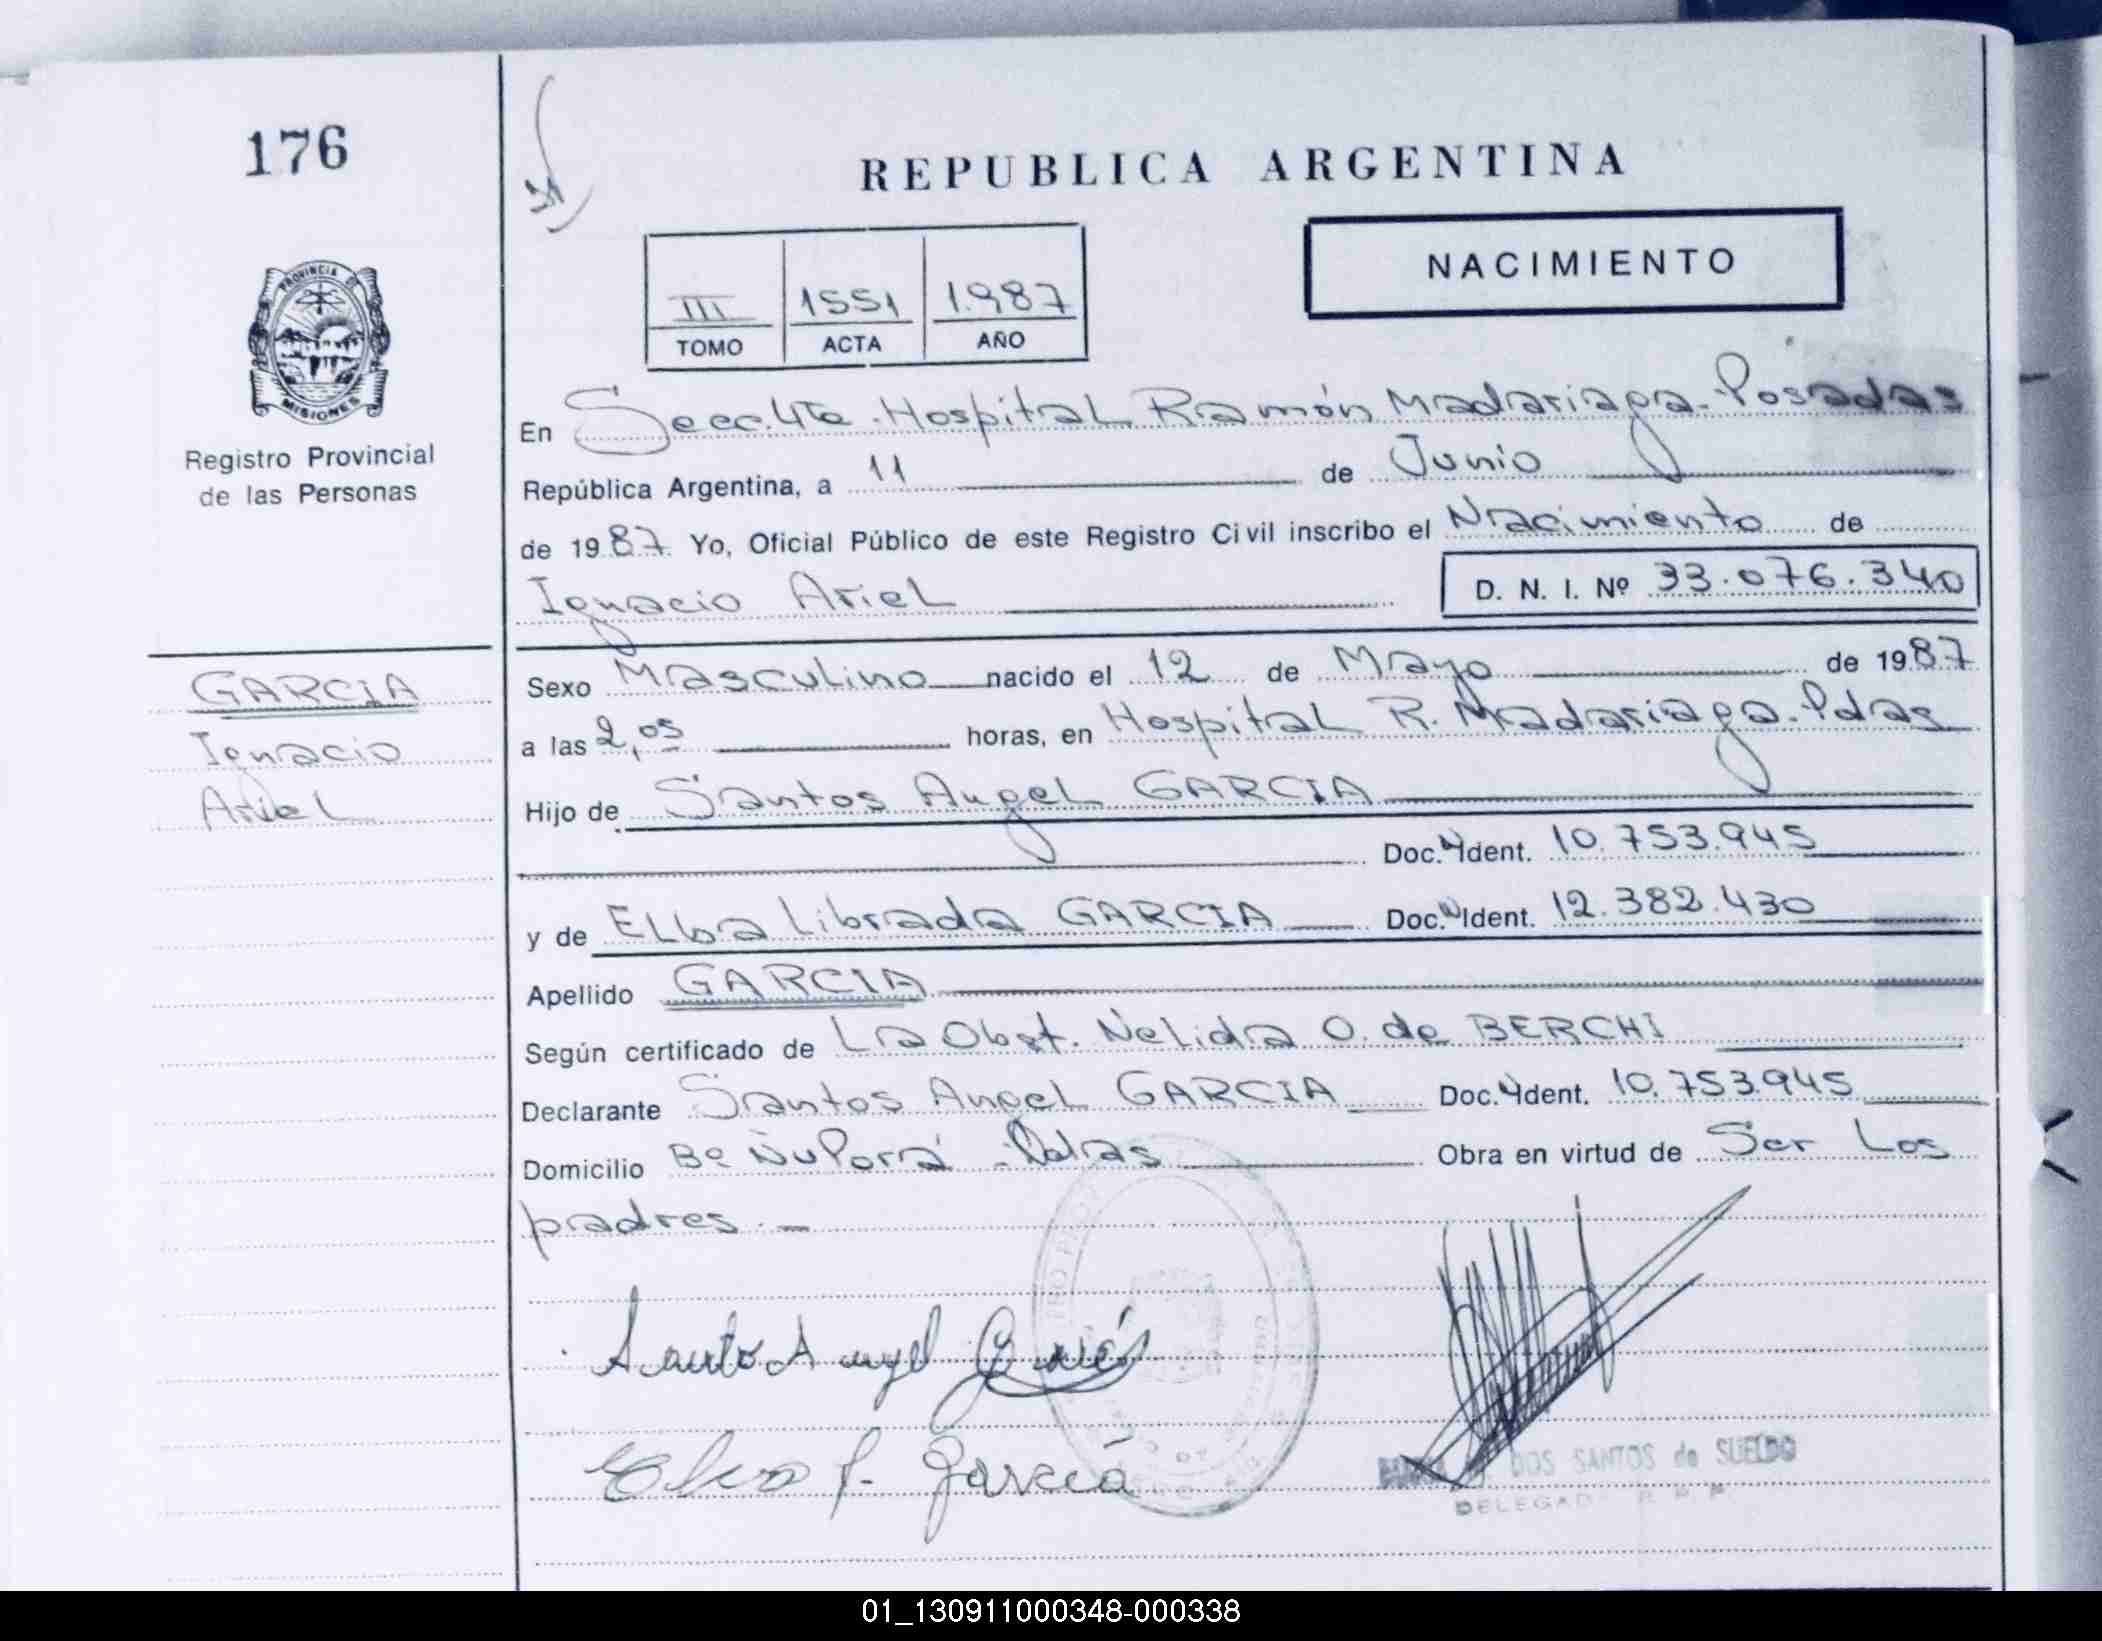 176
REPUBLICA ARGENTINA
NACIMIENTO
III 1551 1.987
TOMO ACTA AÑO
PROVINCIA DE
MISIONES
Registro Provincial
de las Personas
En Secc. 4ta. Hospital Ramón Madariaga. Posadas
República Argentina, a 11 de Junio
de 1987. Yo, Oficial Público de este Registro Civil inscribo el Nacimiento de
Ignacio Ariel D. N. I. Nº 33.076.340
GARCIA
Ignacio
Ariel
Sexo Masculino nacido el 12 de Mayo de 1987
a las 2,05 horas, en Hospital R. Madariaga. Pdas
Hijo de Santos Angel GARCIA
Doc. Ident. 10.753.945
y de ELba Librada GARCIA Doc. Ident. 12.382.430
Apellido GARCIA
Según certificado de La Obst. Nelida O. de BERCHI
Declarante Santos Angel GARCIA Doc. Ident. 10.753.945
Domicilio Bº ÑuPorá - Pdas Obra en virtud de Ser Los
padres. -
Santo Angel Garcia
Elva L. Garcia
DOS SANTOS de SUELDO
DELEGAD R. P. P.
01_130911000348-000338